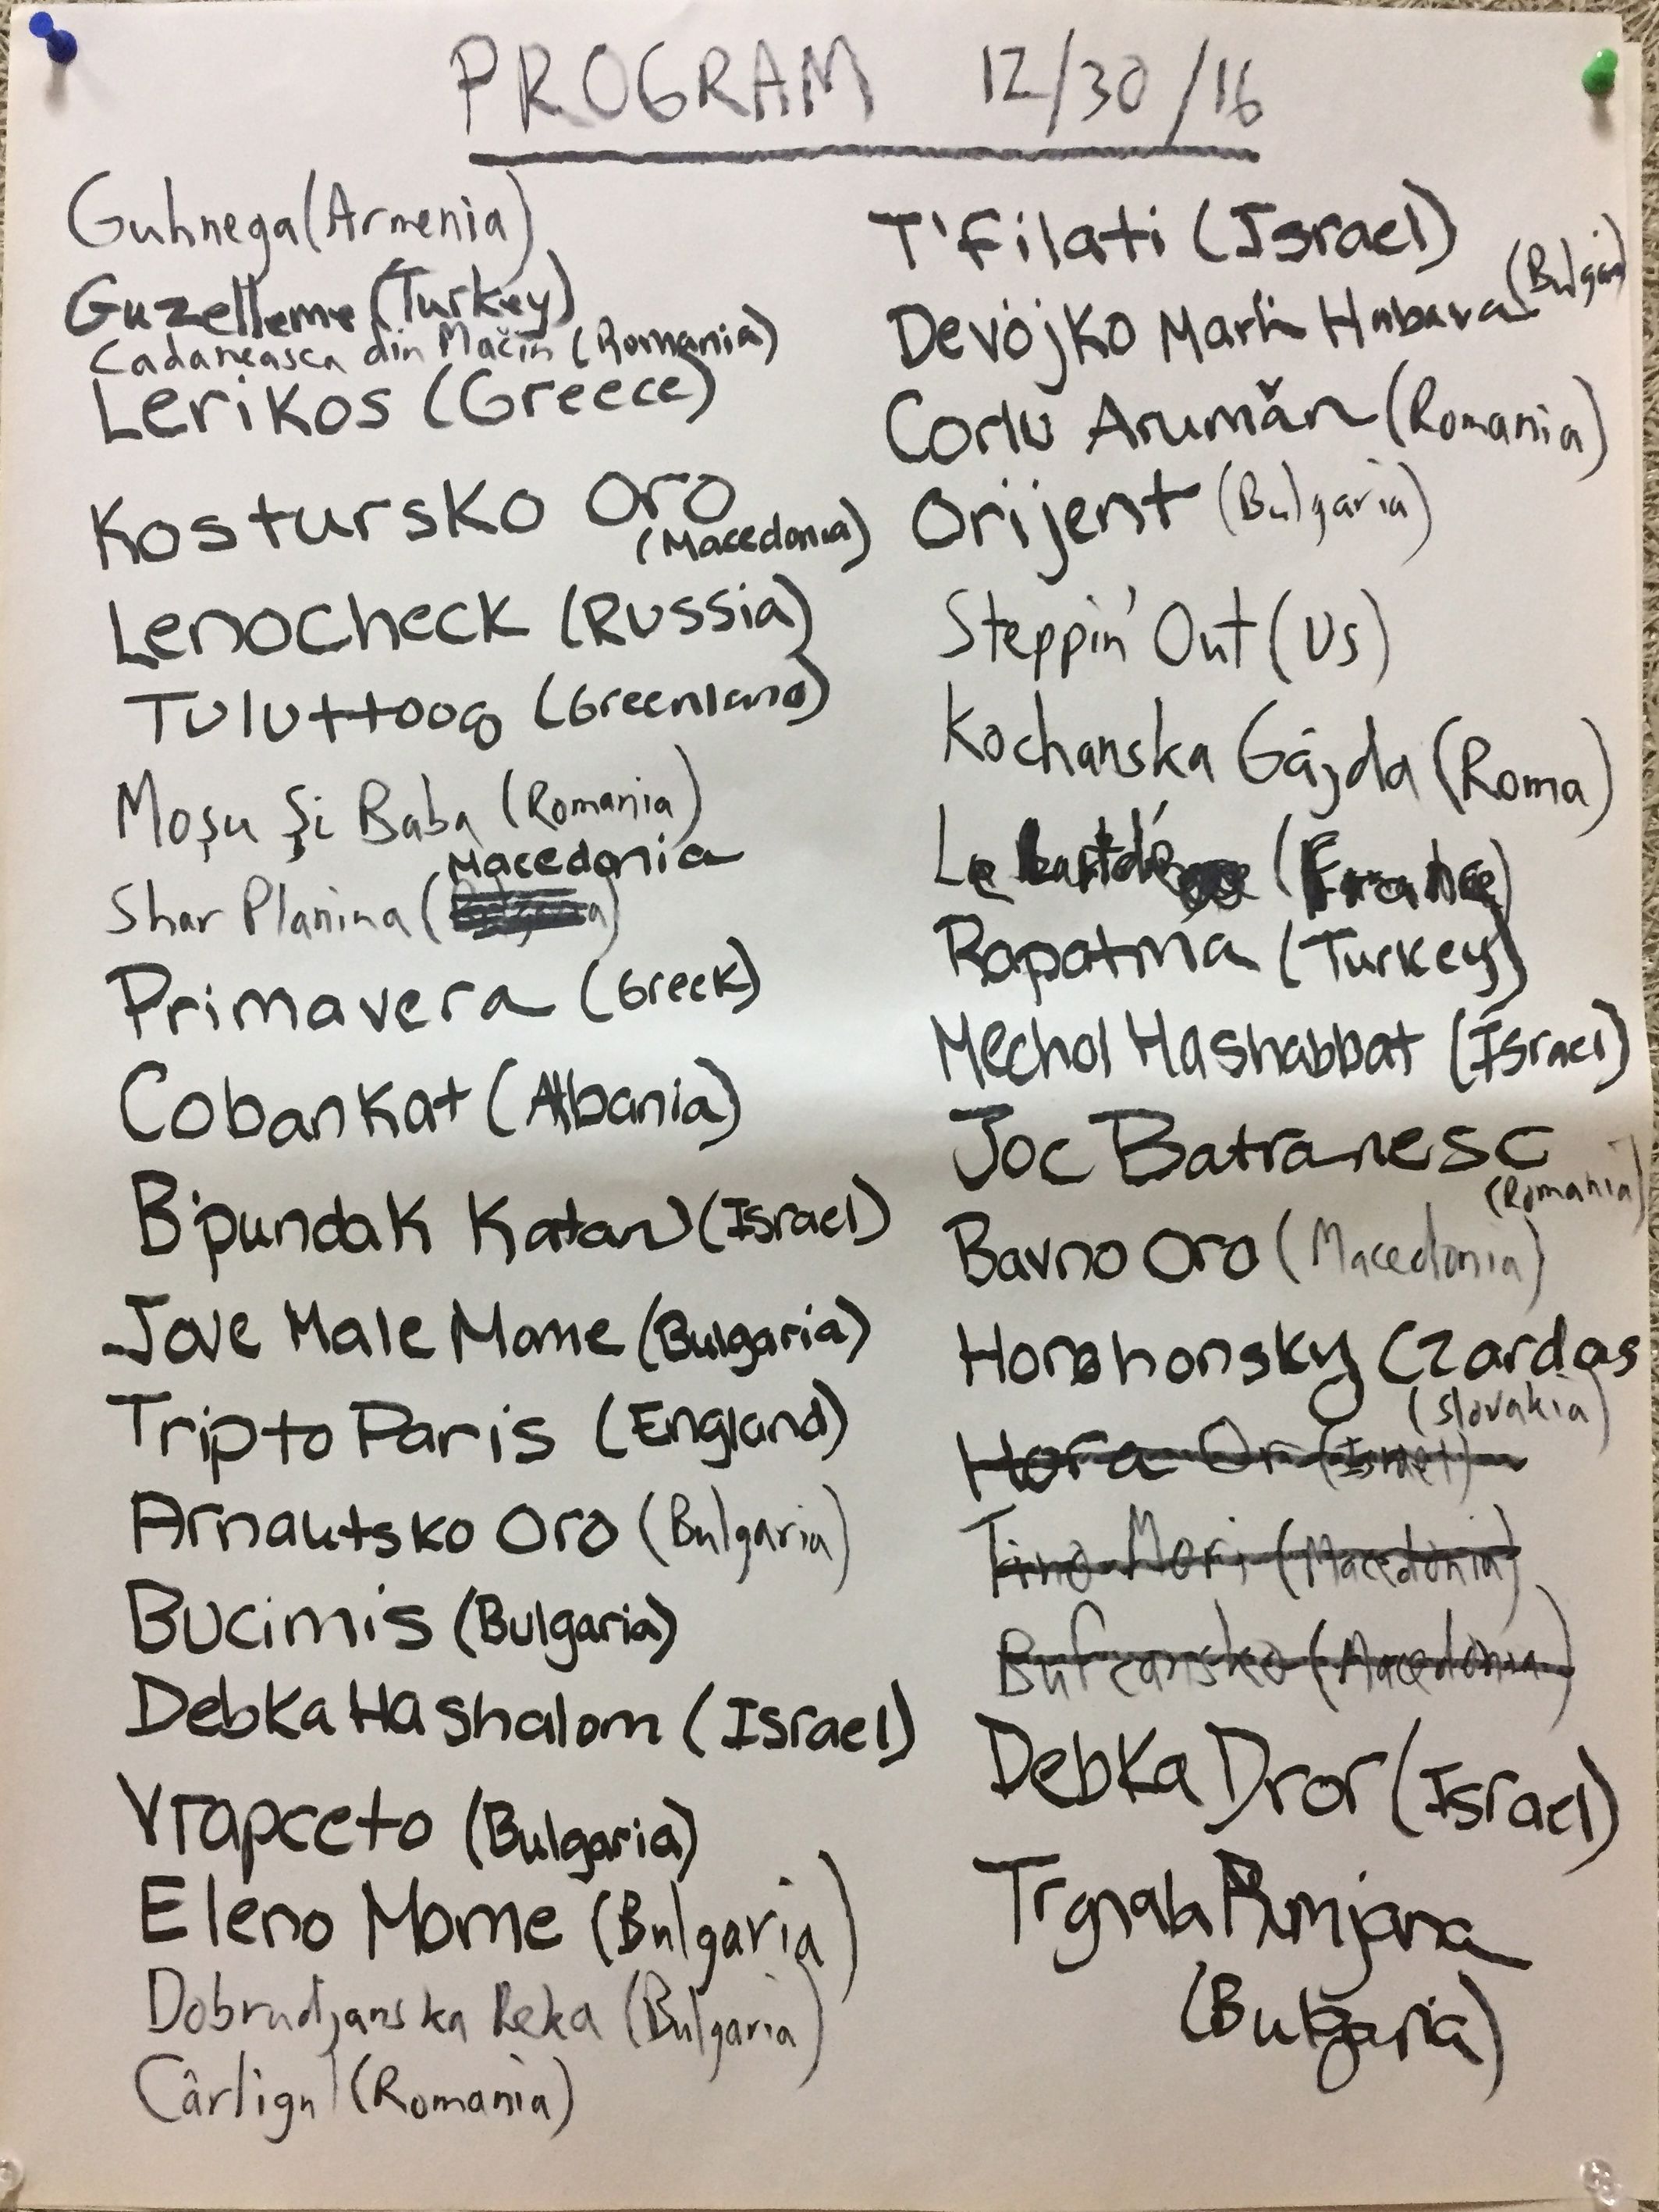 PROGRAM 12/30/16
Guhnega (Armenia)
Guzelleme (Turkey)
Cadaneasca din Mačin (Romania)
Lerikos (Greece)
Kostursko Oro
(Macedonia)
Lenocheck (Russia)
Tuluttoog (Greenland)
Moşu Şi Baba (Romania)
Macedonia
Shar Planina (
Primavera (Greek)
Cobankat (Albania)
B'pundak Katan (Israel)
Jove Male Mome (Bulgaria)
Trip to Paris (England)
Arnautsko Oro (Bulgaria)
Bucimis (Bulgaria)
Debka Hashalom (Israel)
Vrapceto (Bulgaria)
Eleno Mome (Bulgaria)
Dobrudjanska Reka (Bulgaria)
Cârligu (Romania)
T'filati (Israel)
Devojko Mari Hubava (Bulgari
Corlu Arumăn (Romania)
Orijent (Bulgaria)
Steppin' Out (US)
Kochanska Gajda (Roma)
Le (France)
Rapatma (Turkey)
Mechol Hashabbat (Israel)
Joc Batranesc
(Romania)
Bavno Oro (Macedonia)
Horehonsky Czardas
(Slovakia)
Hora Or (Israel)
Tino Mori (Macedonia)
Bufcansko (Macedonia)
Debka Dror (Israel)
Trgnala Rumjana
(Bulgaria)